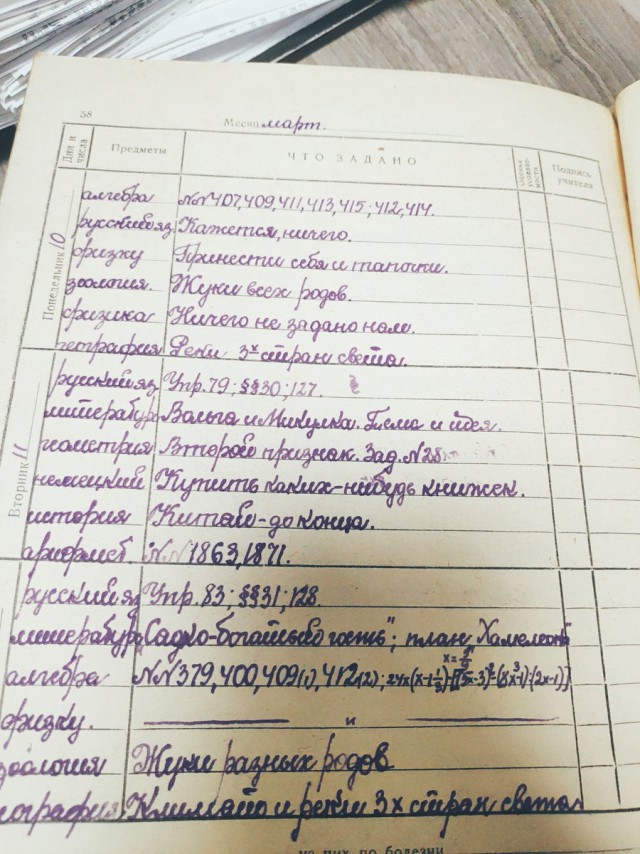 38
Месяц март.
Дни и числа Предметы ЧТО ЗАДАНО Оценка успеваемости Подпись учителя
Понедельник 10
алгебра №№407,409,411,413,415; 412,414.
русский яз Кажется, ничего.
физку Принести себя и тапочки.
зоология. Жуки всех родов.
физика Ничего не задано нам.
география Реки 3х стран света.
Вторник 11
русский яз Упр. 79; §§30; 127.
литература Вольга и Микулка. Тема и идея.
геометрия Второй признак. Зад. №28.
немецкий Купить каких-нибудь книжек.
история Китай-до конца.
арифмет. №№1863, 1871.
русский яз Упр. 83; §§31; 128.
литература "Садко-богатый гость"; план "Хамелеон"
алгебра №№379, 400, 409(1), 412(2);
физку. и
зоология Жуки разных родов
география Климат и реки 3х стран света
из них по болезни